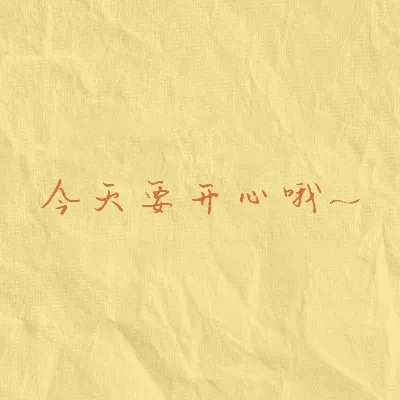 今天要开心哦~